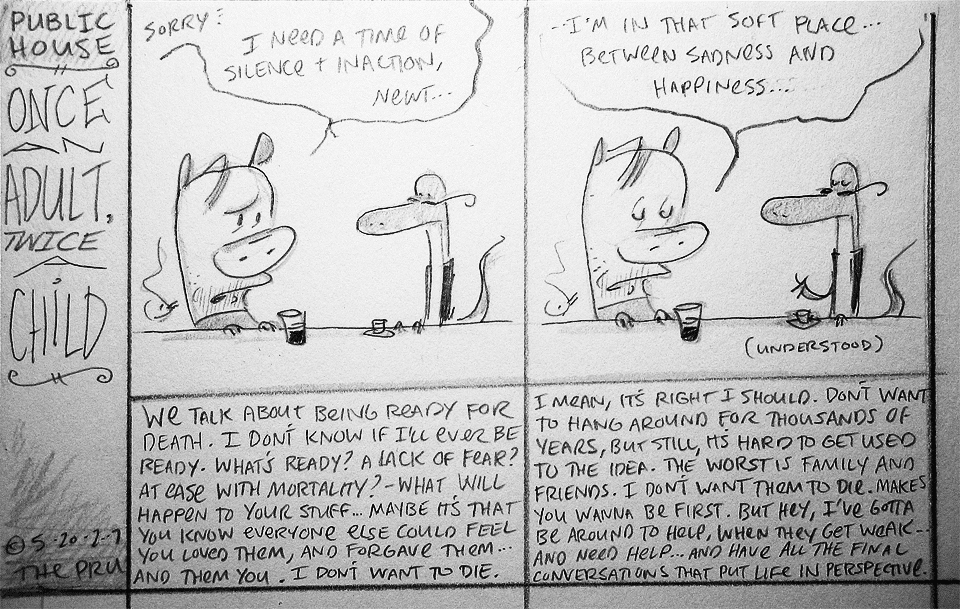 PUBLIC
HOUSE
ONCE
AN
ADULT,
TWICE
A
CHILD
SORRY:
I NEED A TIME OF
SILENCE + INACTION,
NEWT...
-I'M IN THAT SOFT PLACE...
BETWEEN SADNESS AND
HAPPINESS...
(UNDERSTOOD)
WE TALK ABOUT BEING READY FOR
DEATH. I DON'T KNOW IF I'LL EVER BE
READY. WHAT'S READY? A LACK OF FEAR?
AT EASE WITH MORTALITY? - WHAT WILL
HAPPEN TO YOUR STUFF... MAYBE IT'S THAT
YOU KNOW EVERYONE ELSE COULD FEEL
YOU LOVED THEM, AND FORGAVE THEM...
AND THEM YOU. I DON'T WANT TO DIE.
I MEAN, IT'S RIGHT I SHOULD. DON'T WANT
TO HANG AROUND FOR THOUSANDS OF
YEARS, BUT STILL, IT'S HARD TO GET USED
TO THE IDEA. THE WORST IS FAMILY AND
FRIENDS. I DON'T WANT THEM TO DIE. MAKES
YOU WANNA BE FIRST. BUT HEY, I'VE GOTTA
BE AROUND TO HELP, WHEN THEY GET WEAK...
AND NEED HELP... AND HAVE ALL THE FINAL
CONVERSATIONS THAT PUT LIFE IN PERSPECTIVE.
© 5-20-2-7
THE PRU